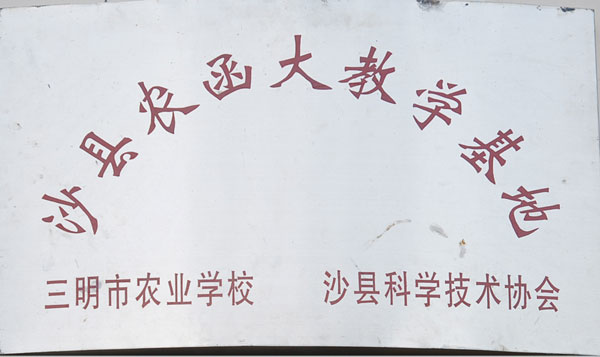 沙县农函大教学基地
三明市农业学校 沙县科学技术协会